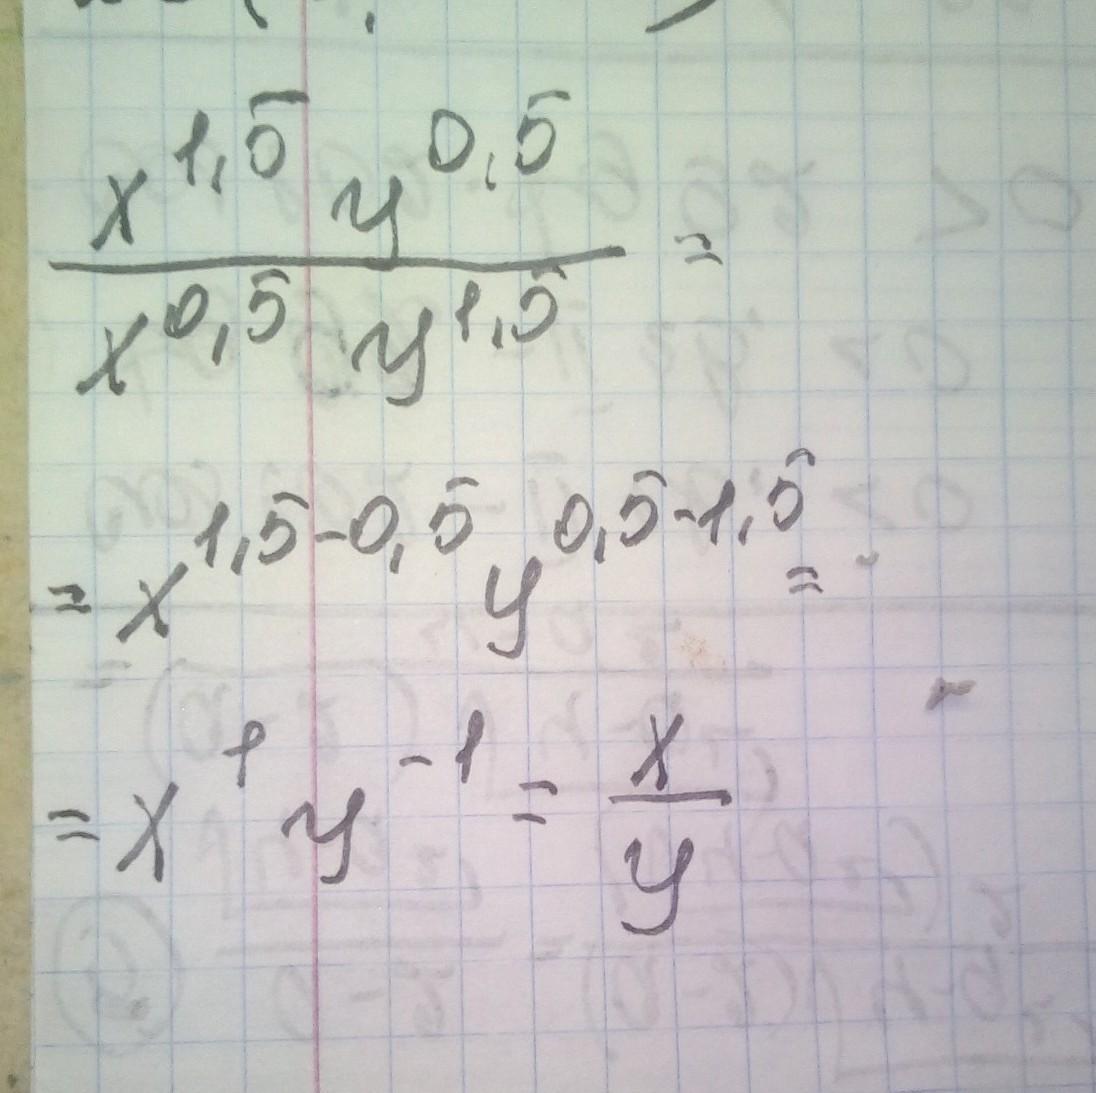 x^1,5 y^0,5
/ x^0,5 y^1,5 =
= x^1,5-0,5 y^0,5-1,5 =
= x^1 y^-1 = x/y